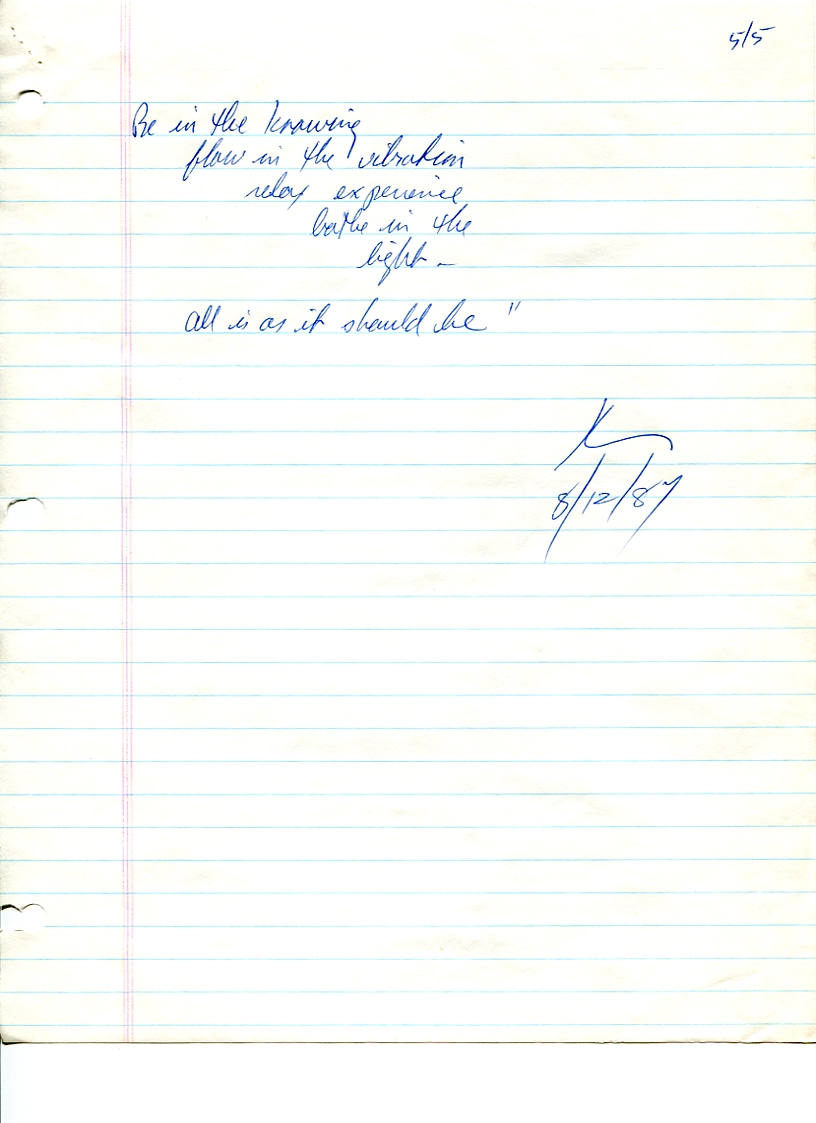 5/5
Be in the knowing
flow in the vibration
relax experience
bathe in the
light –
all is as it should be "
8/12/87